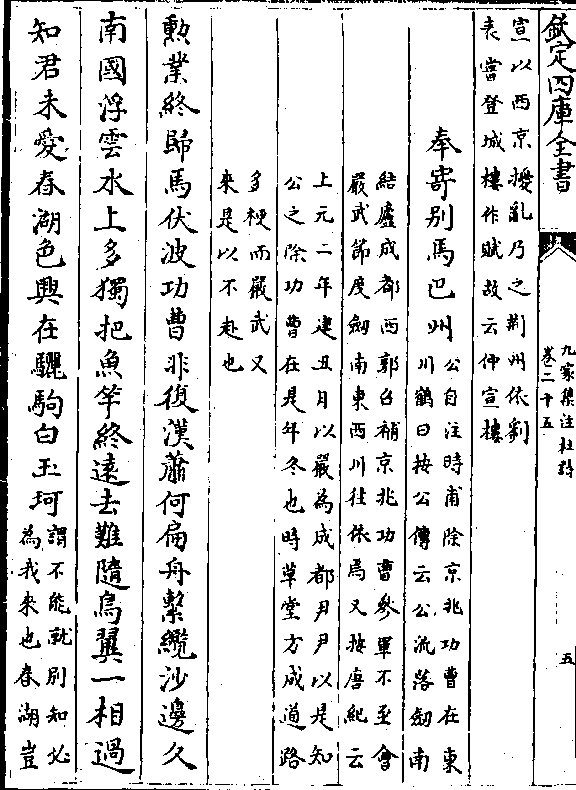 欽定四庫全書
九家集注杜詩
卷二十五
五
宣以西京擾亂乃之荆州依劉
表嘗登城樓作賦故云仲宣樓
奉寄别馬巴州
公自注時甫除京兆功曹在東
川鶴曰按公傳云公流落劒南
結廬成都西郭召補京兆功曹參軍不至會
嚴武節度劒南東西川往依焉又按唐紀云
上元二年建丑月以嚴為成都尹尹以是知
公之除功曹在是年冬也時草堂方成道路
多梗而嚴武又
來是以不赴也
勲業終歸馬伏波功曹非復漢蕭何扁舟繫纜沙邊久
南國浮雲水上多獨把魚竿終遠去難隨鳥翼一相過
知君未愛春湖色興在驪駒白玉珂
謂不能就别知必
為我來也春湖豈